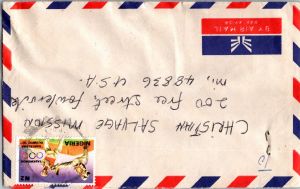 BY AIR MAIL
PAR AVION
CHRISTIAN SALVAGE MISSION
200 Free Street, Fowlerville
Mi, 48836 U.S.A.
NIGERIA
N2